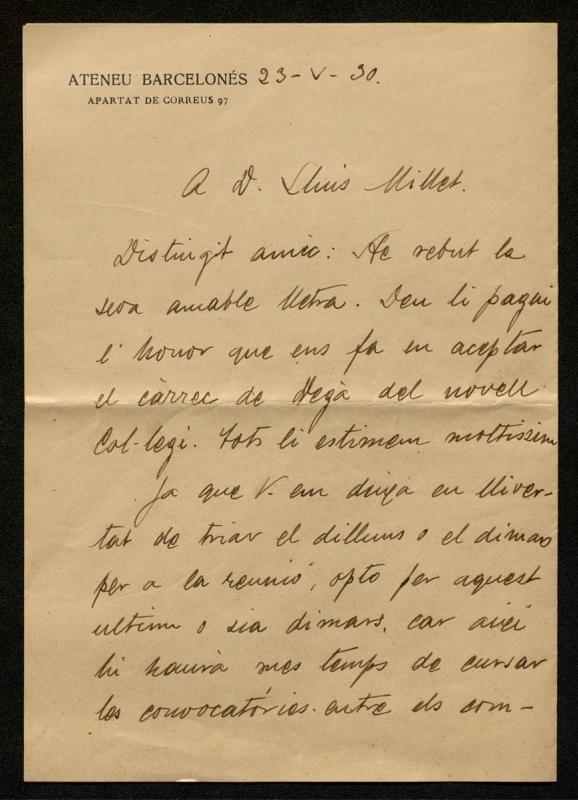 ATENEU BARCELONÉS 23-V-30.
APARTAT DE CORREUS 97
A D. Lluis Millet.
Distingit amic: He rebut la
seva amable lletra. Deu li pagui
l'honor que ens fa en aceptar
el càrrec de Degà del novell
Col-legi. Tots li estimem moltissim
Ja que V. em deixa en lliver-
tat de triar el dilluns o el dimars
per a la reunió, opto per aquest
ultim o sia dimars, car aixi
hi haurà mes temps de cursar
les convocatòries entre els com-